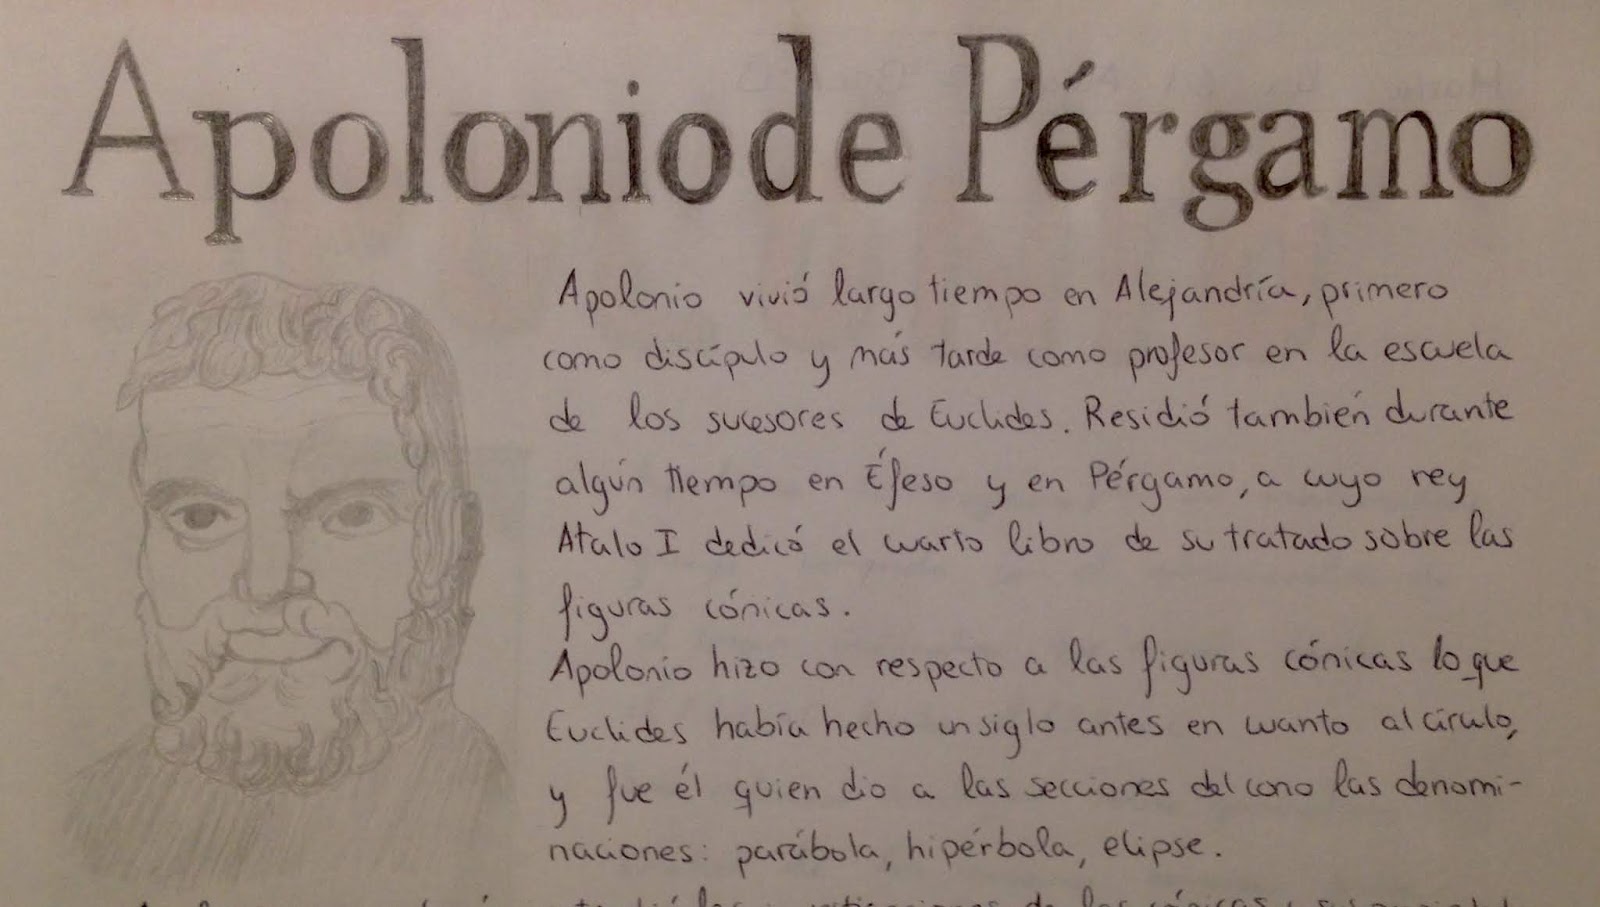 Apolonio de Pérgamo
Apolonio vivió largo tiempo en Alejandría, primero
como discípulo y más tarde como profesor en la escuela
de los sucesores de Euclides. Residió también durante
algún tiempo en Éfeso y en Pérgamo, a cuyo rey
Atalo I dedicó el cuarto libro de su tratado sobre las
figuras cónicas.
Apolonio hizo con respecto a las figuras cónicas lo que
Euclides había hecho un siglo antes en cuanto al círculo,
y fue él quien dio a las secciones del cono las denomi-
naciones: parábola, hipérbola, elipse.
de las cónicas